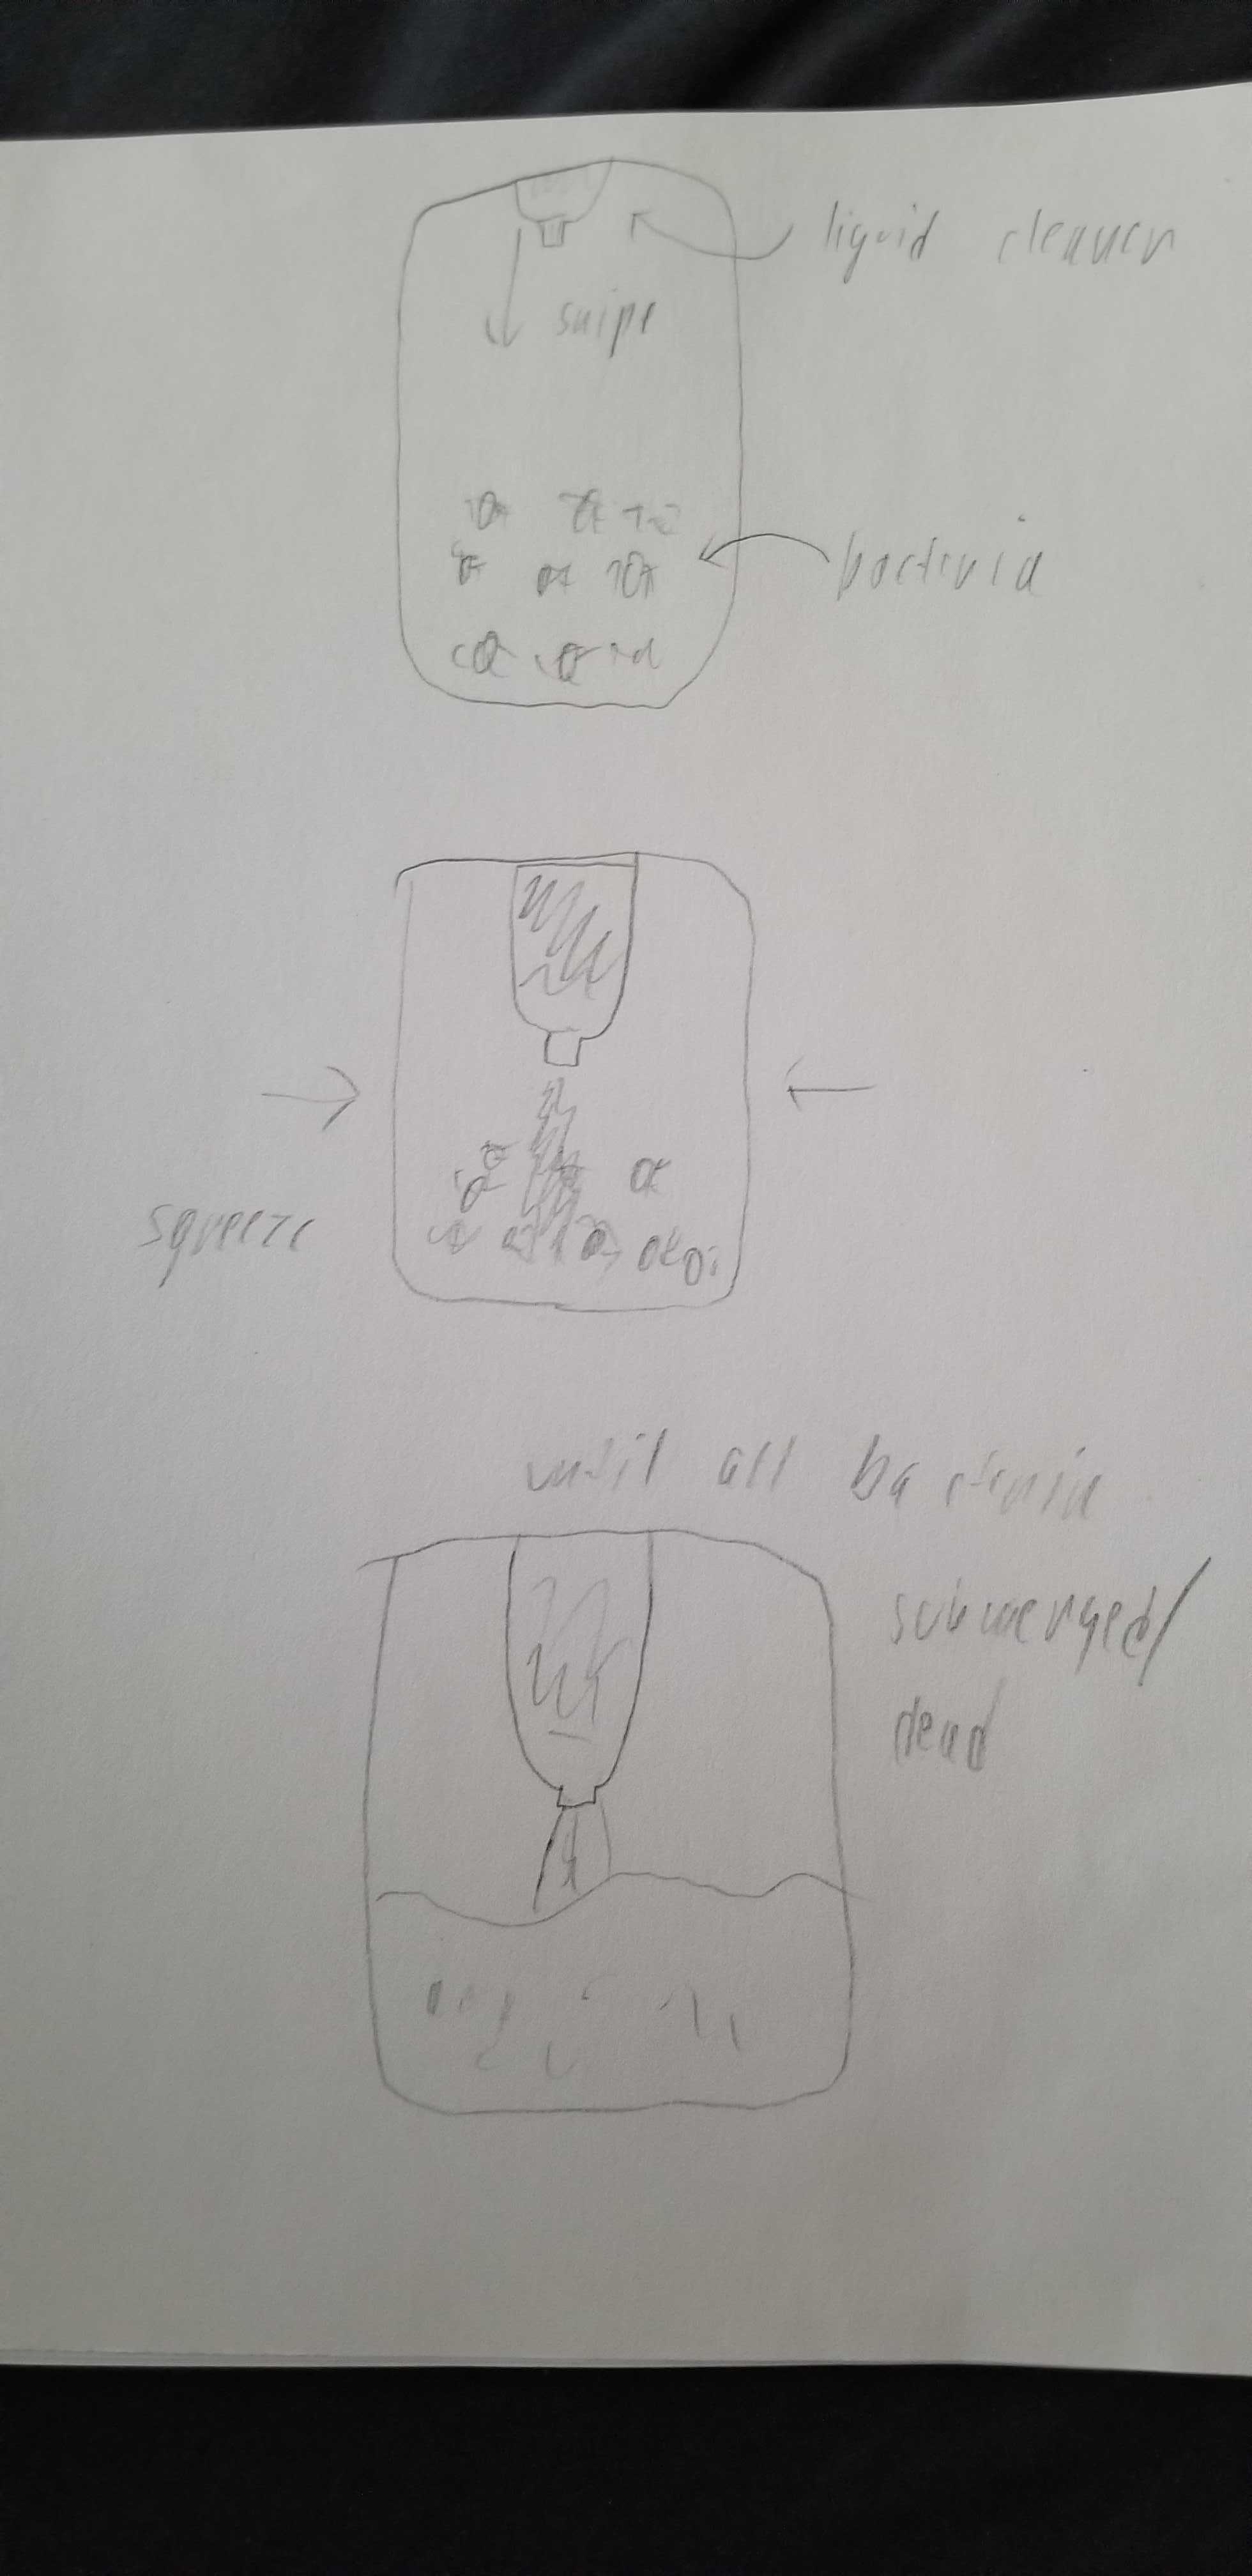 liquid cleaner
swipe
bacteria
squeeze
until all bacteria
submerged/
dead